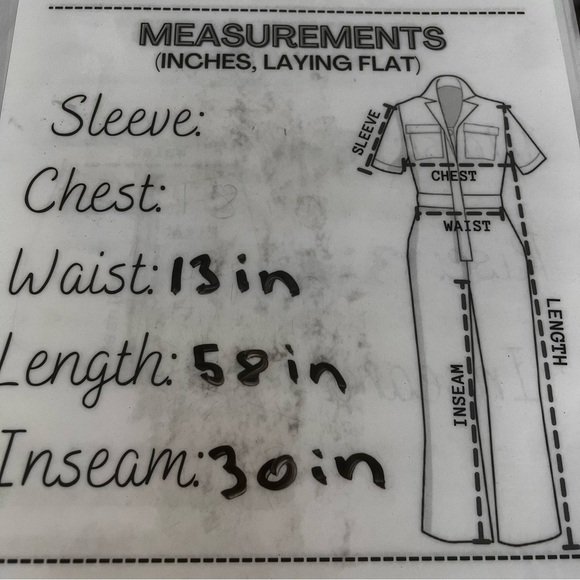 MEASUREMENTS
(INCHES, LAYING FLAT)
Sleeve:
Chest:
Waist: 13in
Length: 58in
Inseam: 30in
SLEEVE
CHEST
WAIST
LENGTH
INSEAM